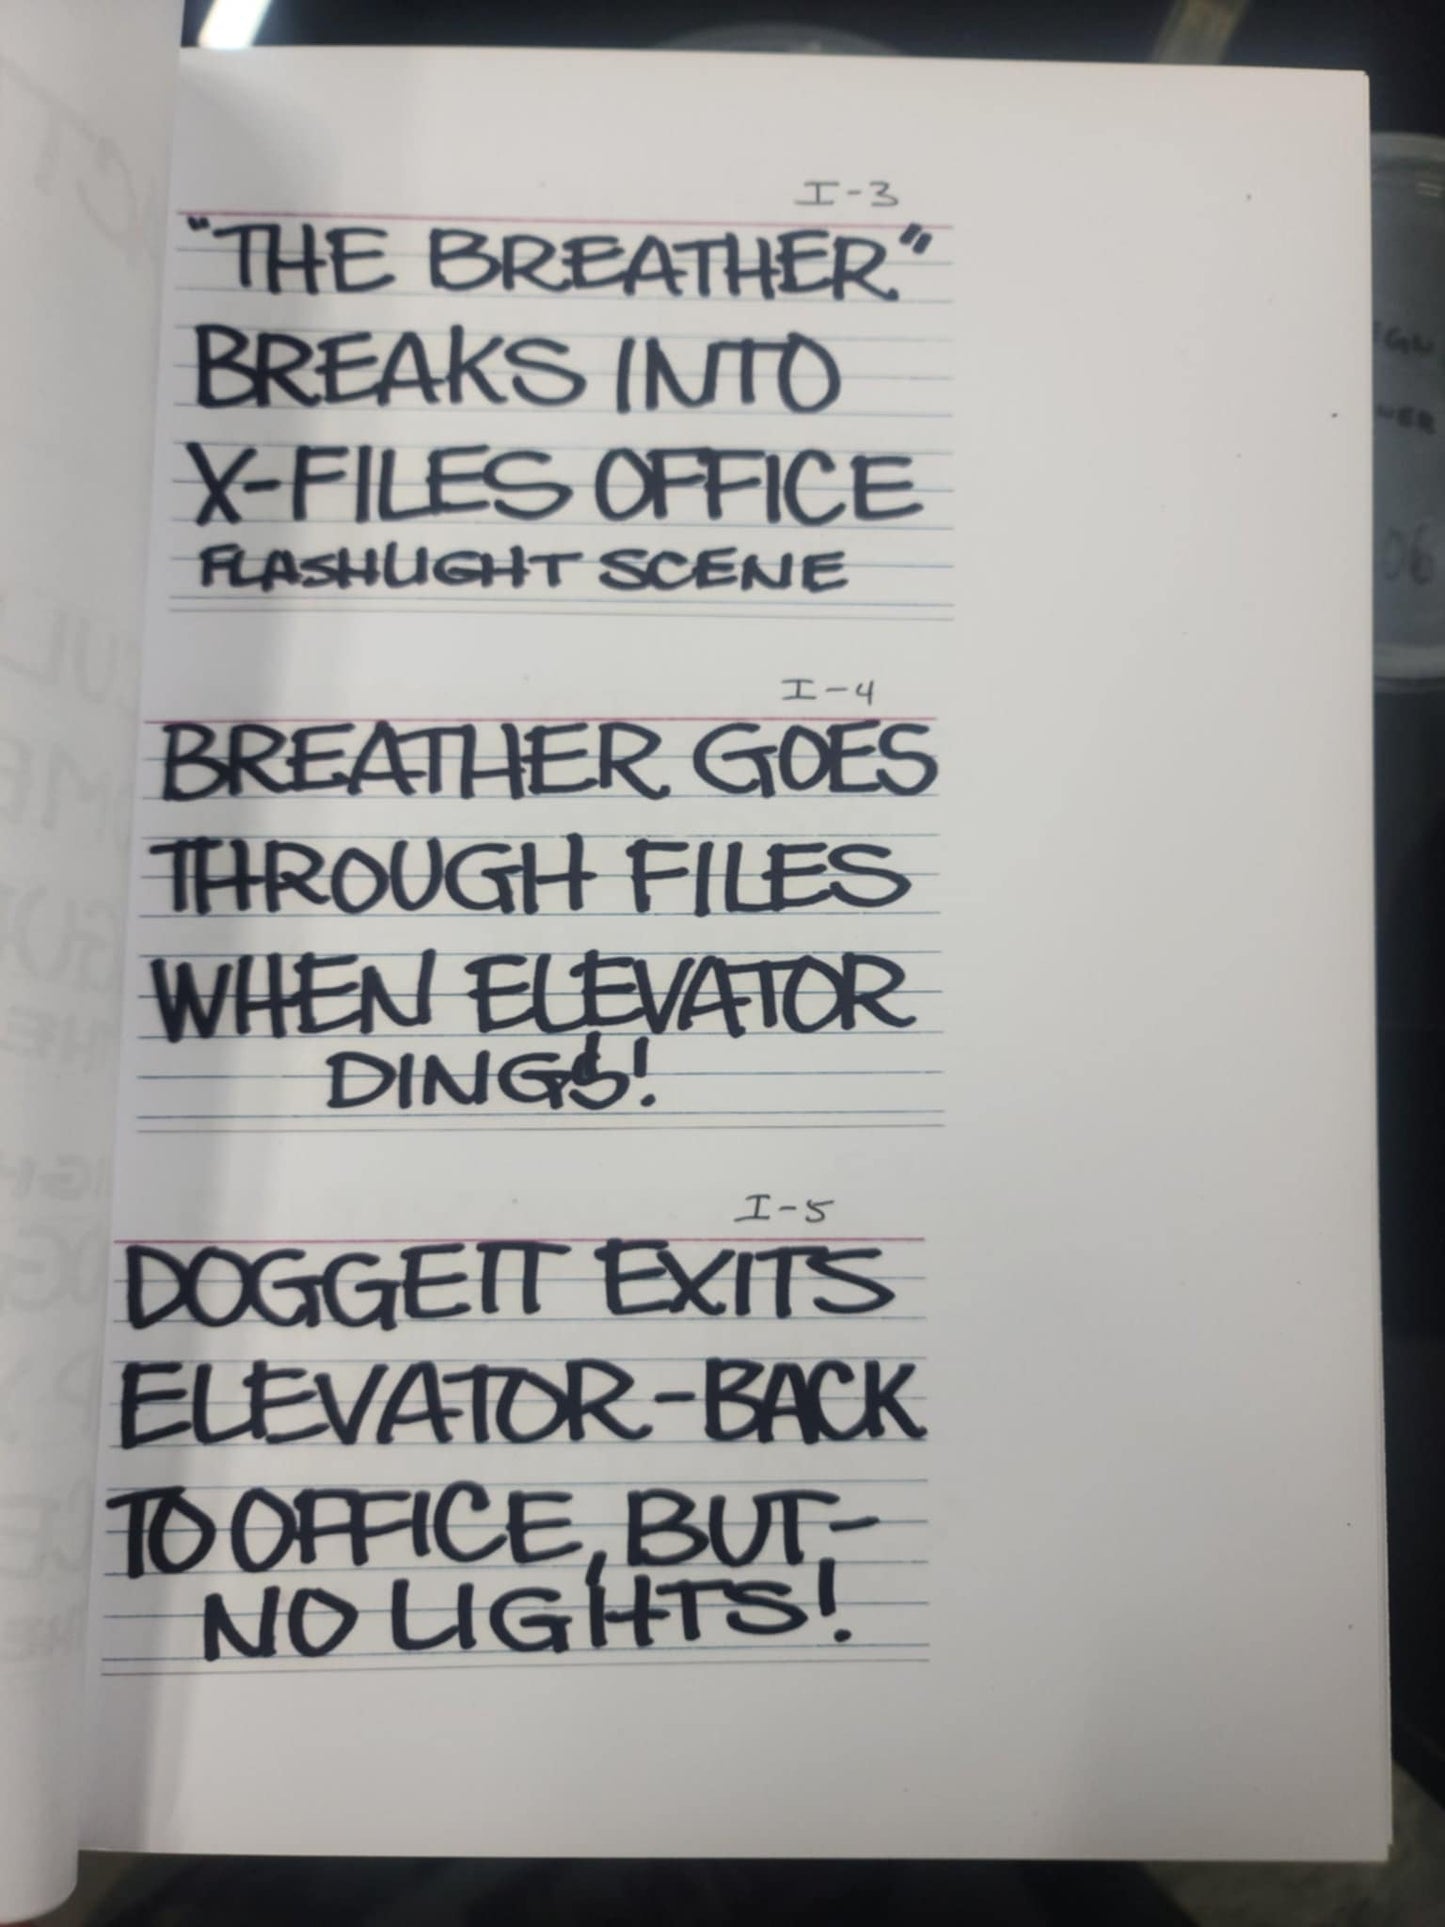 I-3
"THE BREATHER"
BREAKS INTO
X-FILES OFFICE
FLASHLIGHT SCENE
I-4
BREATHER GOES
THROUGH FILES
WHEN ELEVATOR
DINGS!
I-5
DOGGETT EXITS
ELEVATOR-BACK
TO OFFICE, BUT-
NO LIGHTS!